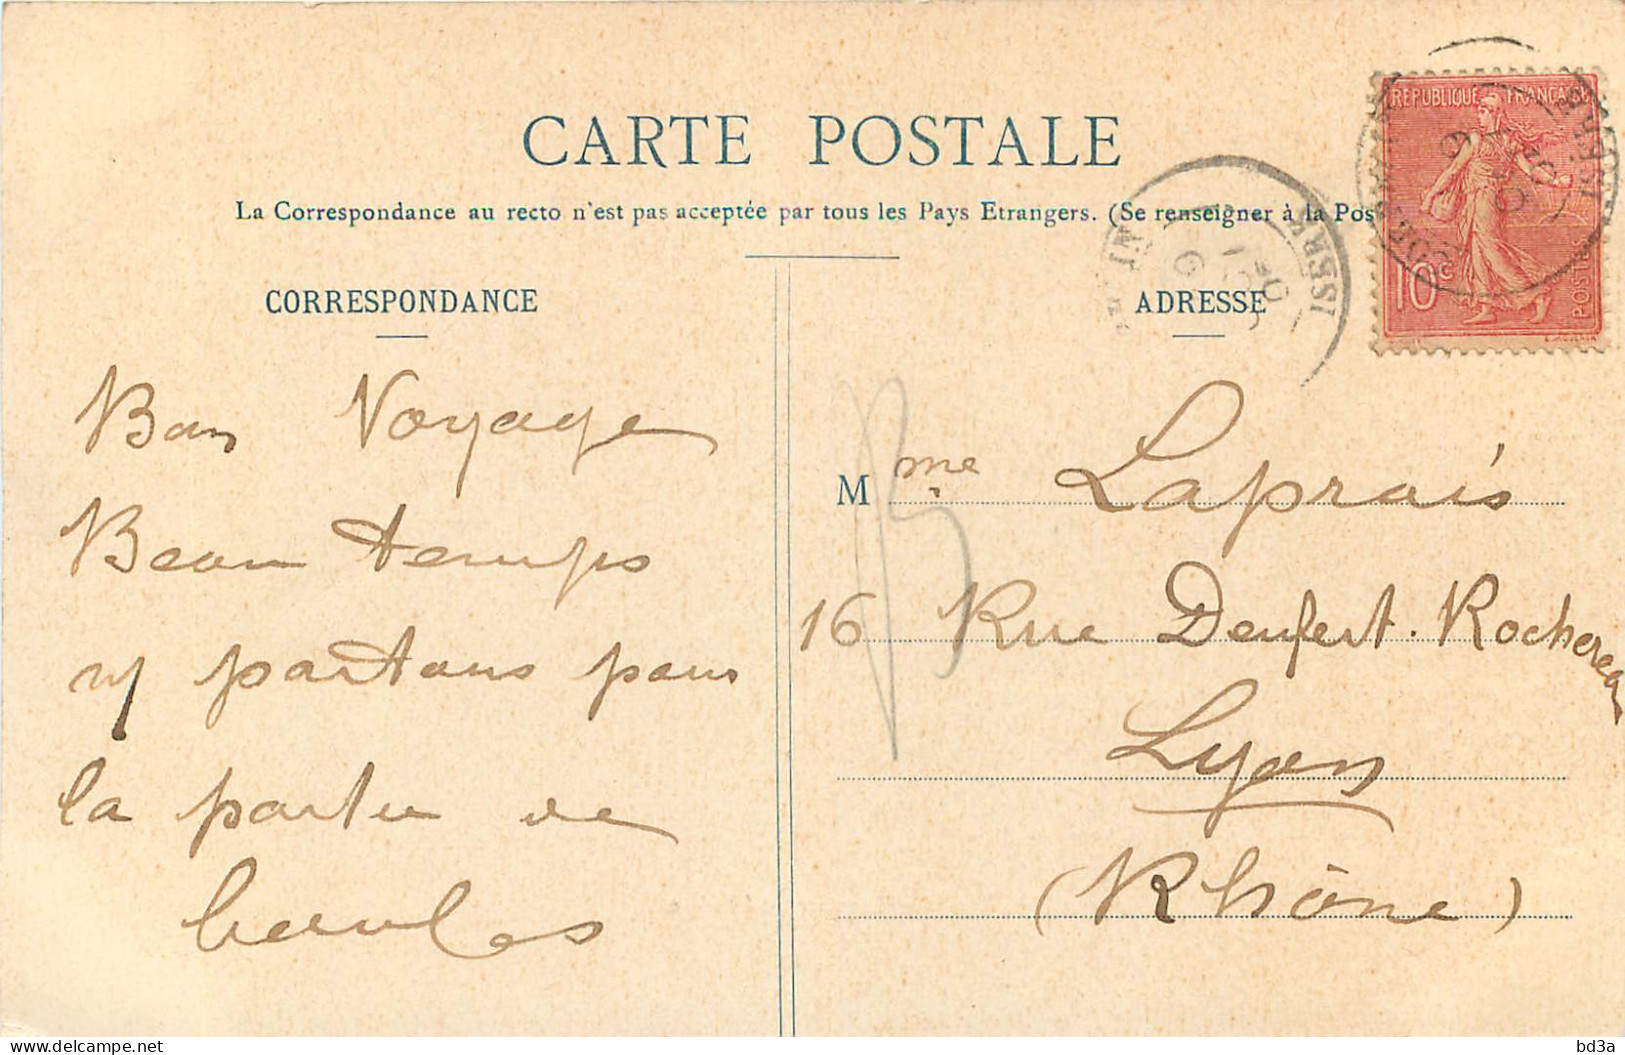 CARTE POSTALE
La Correspondance au recto n'est pas acceptée par tous les Pays Etrangers. (Se renseigner à la Pos
CORRESPONDANCE
ADRESSE
RÉPUBLIQUE FRANÇAISE
10c
POSTES
ISERE
Bon Voyage
Beau temps
ns partons pour
la partie de
boules
Mme Laprais
16 Rue Denfert-Rochereau
Lyon
(Rhône)
bd3a